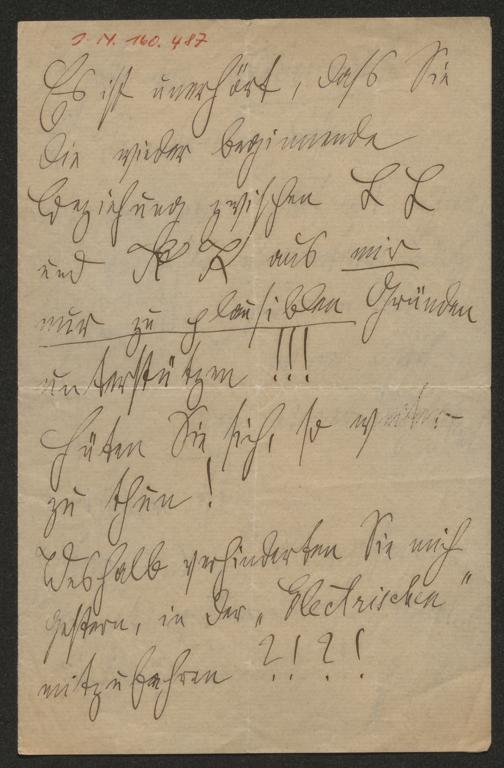 J. N. 160.487
Es ist unerhört, dass Sie
die wieder beginnende
Beziehung zwischen L L
und K K aus mir
nur zu plausiblen Gründen
unterstützen !!!
Hüten Sie sich, so weiter
zu thun !
Weshalb verhinderten Sie mich
gestern, in der „Electrischen"
mitzufahren ?!?!